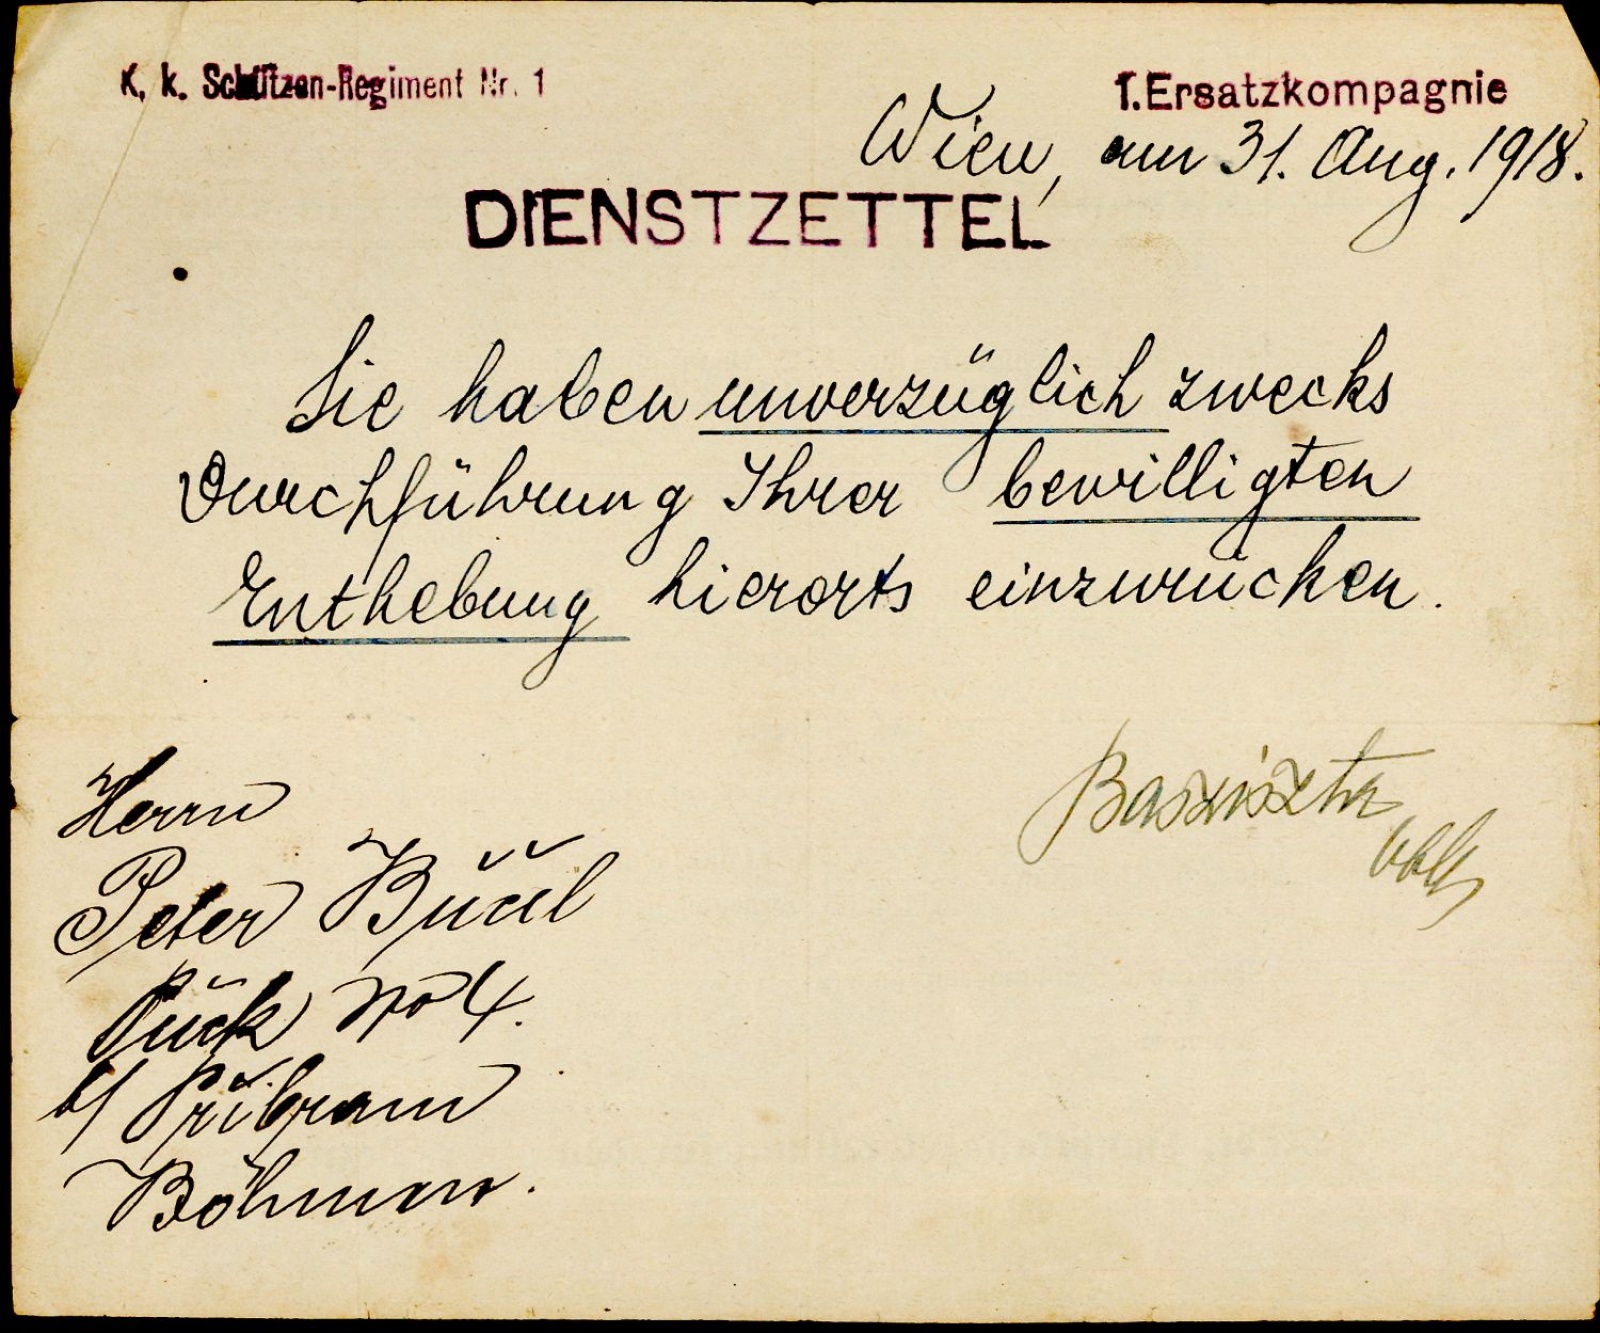 K. k. Schützen-Regiment Nr. 1
1. Ersatzkompagnie
Wien, am 31. Aug. 1918.
DIENSTZETTEL
Sie haben unverzüglich zwecks
Durchführung Ihrer bewilligten
Enthebung hierorts einzurücken.
Herrn
Peter
No 4.
b/ Přibram
Böhmen.